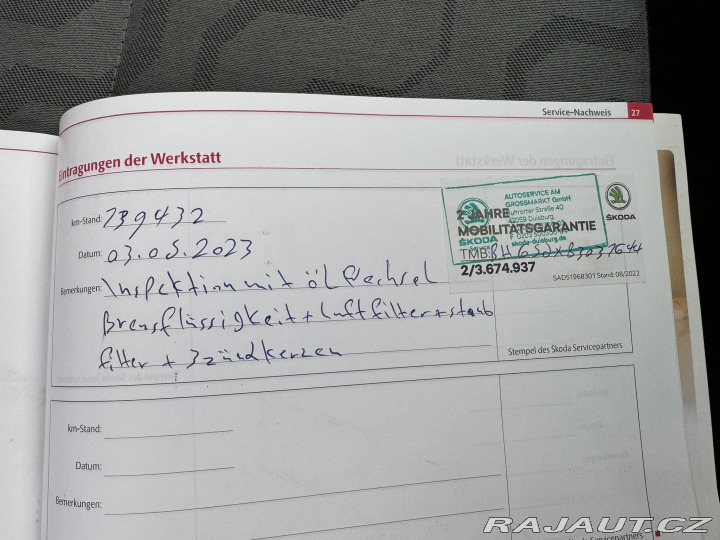 Service-Nachweis 27
Eintragungen der Werkstatt
km-Stand: 139432
Datum: 03.05.2023
Bemerkungen: Inspektion mit öl Wechsel
Bremsflüssigkeit + Luftfilter + staub
filter + 3 zündkerzen
AUTOSERVICE AM
GROSSMARKT GmbH
Ruhrorter Straße 40
Duisburg
skoda-duisburg.de
ŠKODA
Service
2 JAHRE
MOBILITÄTSGARANTIE
TMB:
2/3.674.937
ŠKODA
SAD51968301 Stand: 08/2022
Stempel des Škoda Servicepartners
km-Stand:
Datum:
Bemerkungen:
Stempel des Škoda Servicepartners
RAJAUT.CZ